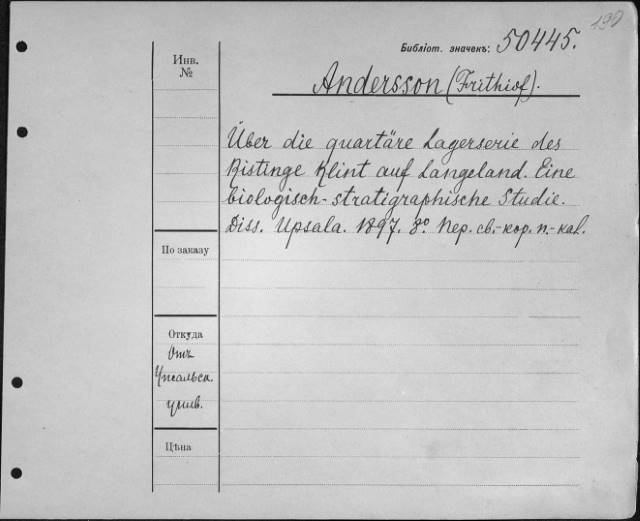 190
Библіот. значекъ: 50445.
Инв.
№
Andersson (Frithiof).
Über die quartäre Lagerserie des
Ristinge Klint auf Langeland. Eine
biologisch-stratigraphische Studie.
Diss. Upsala. 1897. 8º. Пер. св.-кор. п.-кал.
По заказу
Откуда
Отъ
Упсальск.
унив.
Цѣна